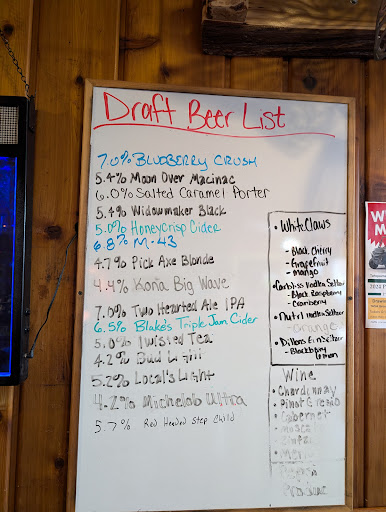 Draft Beer List
7.0% BLUEBERRY CRUSH
5.4% Moon Over Macinac
6.0% Salted Caramel Porter
5.4% Widowmaker Black
5.0% Honeycrisp Cider
6.8% M-43
4.7% Pick Axe Blonde
4.4% Kona Big Wave
7.0% Two Hearted Ale IPA
6.5% Blake's Triple Jam Cider
5.0% Twisted Tea
4.2% Bud Light
5.2% Local's Light
4.2% Michelob Ultra
5.7% Red Headed Step Child
• White Claws
- Black Cherry
- Grapefruit
- Mango
• Carbliss Vodka Seltzer
- Black Raspberry
- Cranberry
• Nutrl Vodka Seltzer
- Orange
• Dillons Gin Seltzer
- Blackberry
Lemon
Wine
• Chardonnay
• Pinot Grigio
• Cabernet
• Moscato